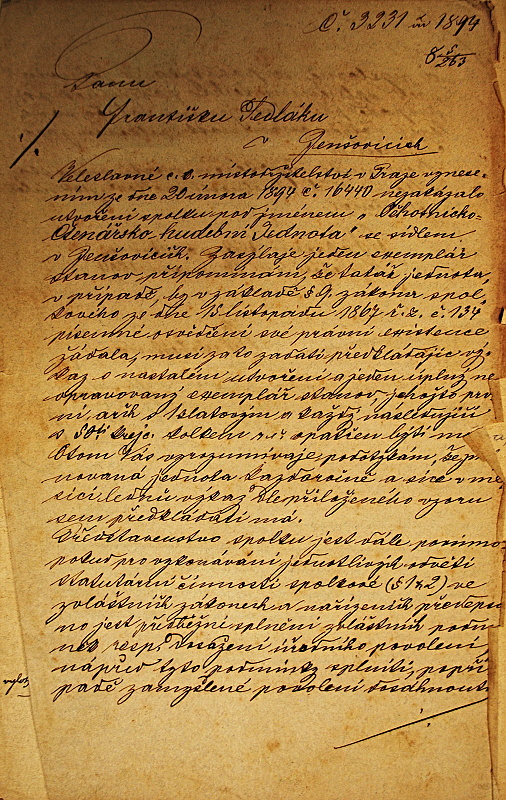 Č. 3231 z 1894
Panu
Františku Sedláku
v Ženšovicích
Veleslavné c. k. místodržitelství v Praze vynese-
ním ze dne 20 února 1894 č. 16440 nezakázalo
utvoření spolku pod jménem „Ochotnicko-
Čtenářsko hudební Jednota" se sídlem
v Ženšovicích. Zasýlaje jeden exemplář
stanov připomínám, že tatáž jednota
v případě, by v základě § 9. zákona spol-
kového ze dne 15 listopadu 1867 ř. z. č. 134
písemné osvědčení své právní existence
žádala, musí za to žádati předkládajíc vý-
kaz o nastalém utvoření a jeden úplný ne
opravovaný exemplář stanov, jehožto prv
ní arch s 1 zlatovým a každý následující
s 50ti krejc. kolkem opatřen býti má.
O tom Vás vyrozumívaje podotýkám, že jme
novaná jednota každoročně a sice v mě
síci lednu výkaz dle přiloženého vzoru
sem předkládati má.
Představenstvo spolku jest dále povinno
pokud pro vykonávání jednotlivých odvětví
statutární činnosti spolkové (§ 1 & 2) ve
zvláštních zákonech a nařízeních předepsá
no jest předběžní splnění zvláštních podmí
nek resp. dosažení úředního povolení,
napřed tyto podmínky splniti, popří
padě zamýšlené povolení dosáhnouti